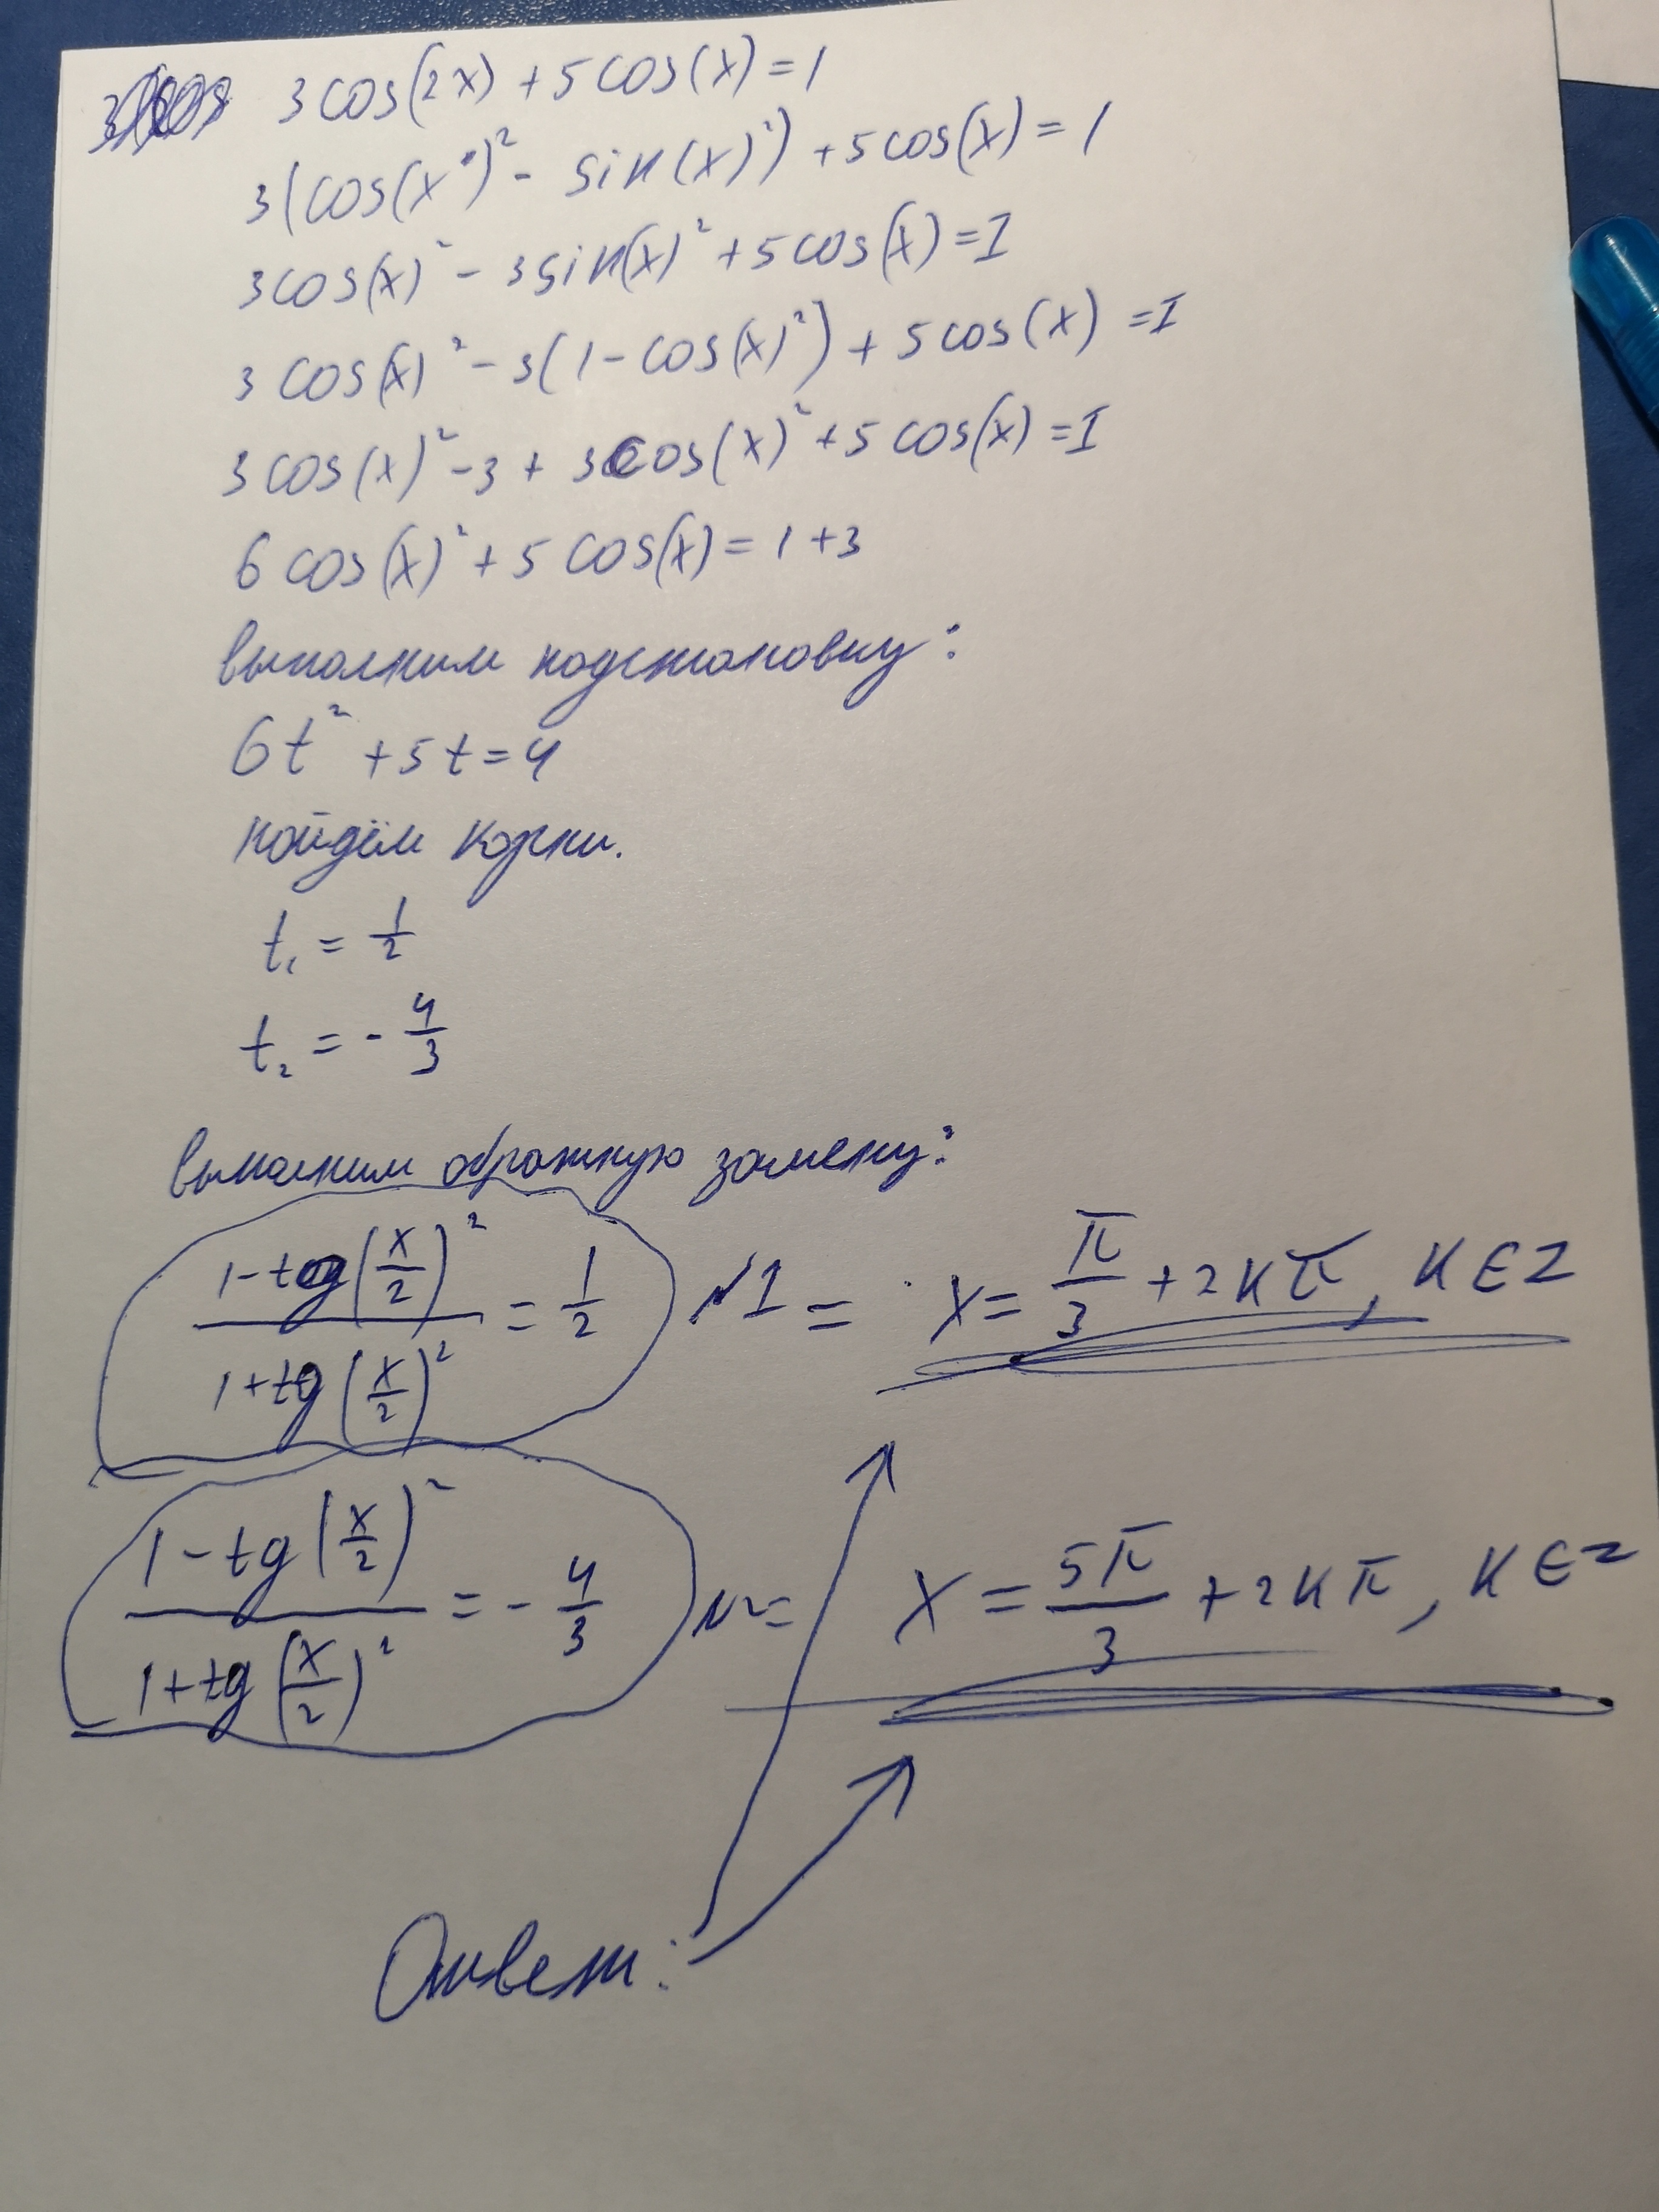 3cos(2x) + 5cos(x) = 1
3(cos(x)² - sin(x)²) + 5cos(x) = 1
3cos(x)² - 3sin(x)² + 5cos(x) = I
3cos(x)² - 3(1 - cos(x)²) + 5cos(x) = I
3cos(x)² - 3 + 3cos(x)² + 5cos(x) = I
6cos(x)² + 5cos(x) = 1 + 3
выполним подстановку:
6t² + 5t = 4
найдём корни.
t₁ = 1/2
t₂ = - 4/3
выполним обратную замену:
(1 - tg(x/2)²)/(1 + tg(x/2)²) = 1/2 N1 = x = π/3 + 2kπ, k ∈ Z
(1 - tg(x/2)²)/(1 + tg(x/2)²) = - 4/3 N2 = x = 5π/3 + 2kπ, k ∈ Z
Ответ: